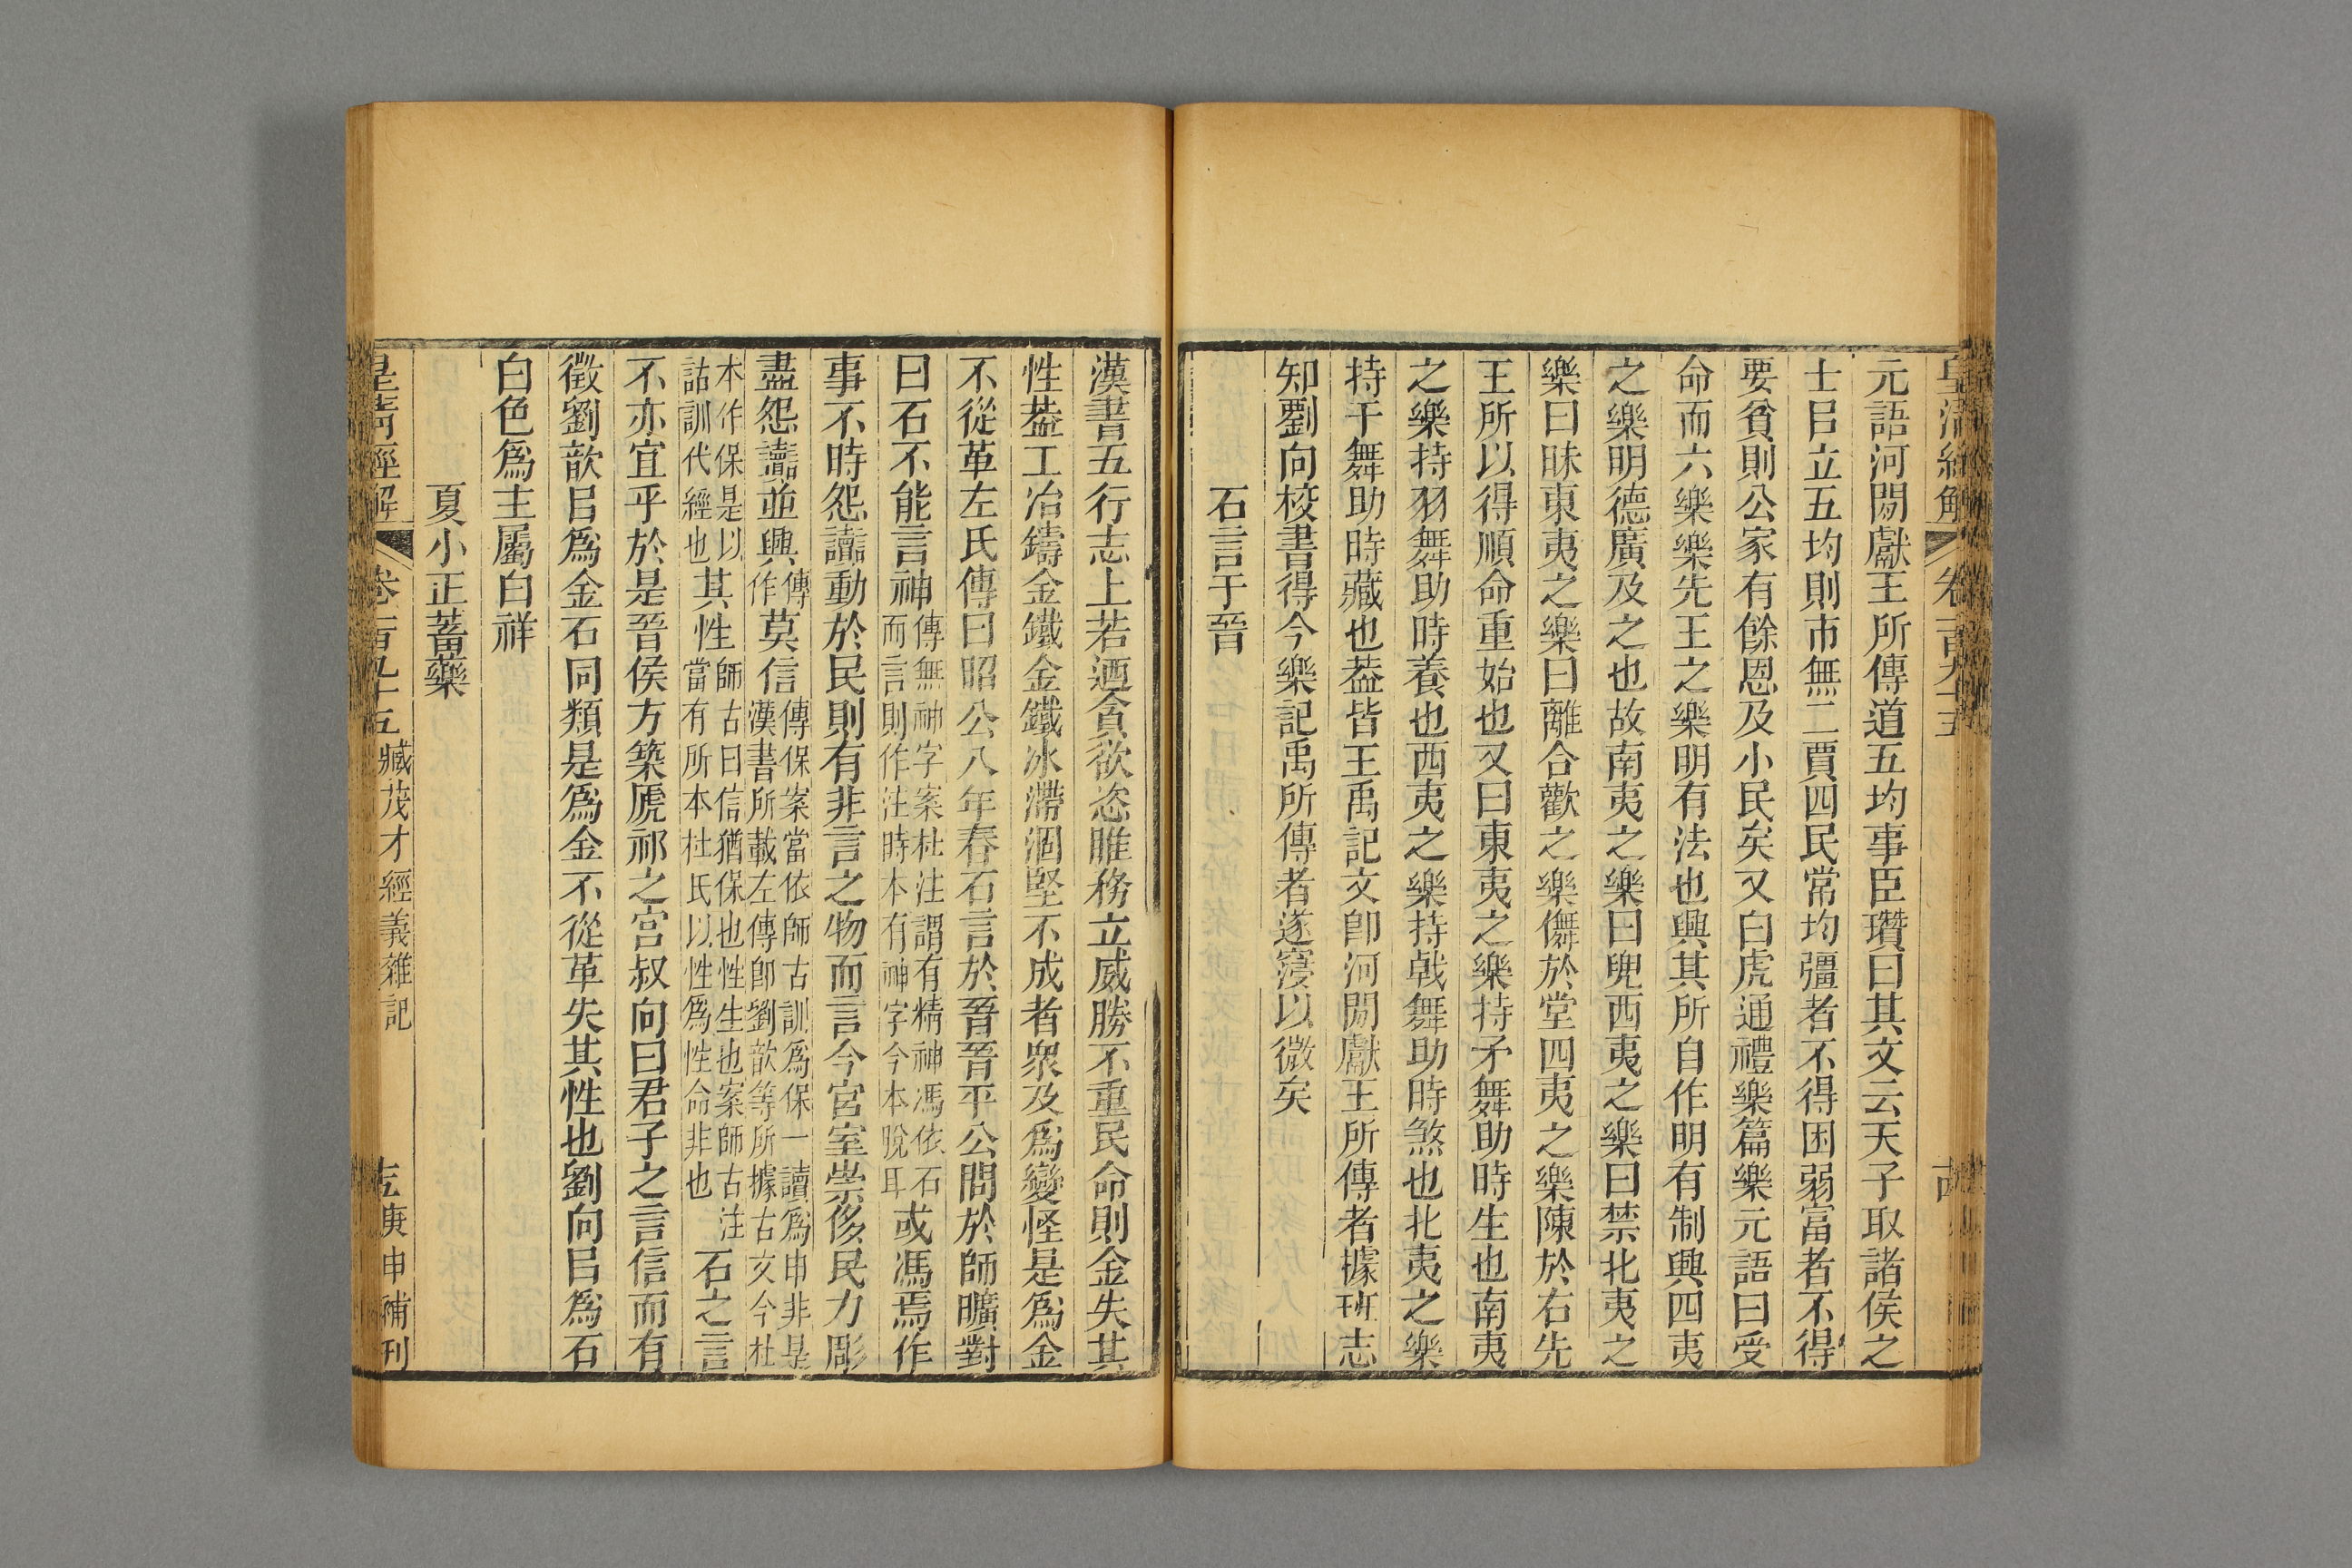 皇清經解 卷一百九十五 十四
元語河閒獻王所傳道五均事臣瓚曰其文云天子取諸侯之
士㠯立五均則市無二賈四民常均彊者不得困弱富者不得
要貧則公家有餘恩及小民矣又白虎通禮樂篇樂元語曰受
命而六樂樂先王之樂明有法也興其所自作明有制興四夷
之樂明德廣及之也故南夷之樂曰兜西夷之樂曰禁北夷之
樂曰昧東夷之樂曰離合歡之樂儛於堂四夷之樂陳於右先
王所以得順命重始也又曰東夷之樂持矛舞助時生也南夷
之樂持羽舞助時養也西夷之樂持戟舞助時煞也北夷之樂
持干舞助時藏也葢皆王禹記文卽河閒獻王所傳者據班志
知劉向校書得今樂記禹所傳者遂寖以微矣
石言于晉
漢書五行志上若迺貪欲恣睢務立威勝不重民命則金失其
性葢工冶鑄金鐵金鐵冰滯涸堅不成者衆及爲變怪是爲金
不從革左氏傳曰昭公八年春石言於晉晉平公問於師曠對
曰石不能言神傳無神字案杜注謂有精神馮依石而言則作注時本有神字今本脫耳或馮焉作
事不時怨讟動於民則有非言之物而言今宮室崇侈民力彫
盡怨讟並興傳作莫信傳保案當依師古訓爲保一讀爲申非是漢書所載左傳卽劉歆等所據古文今杜
本作保是以詁訓代經也其性師古曰信猶保也性生也案師古注當有所本杜氏以性爲性命非也石之言
不亦宜乎於是晉侯方築虒祁之宮叔向曰君子之言信而有
徵劉歆㠯爲金石同類是爲金不從革失其性也劉向㠯爲石
白色爲主屬白祥
夏小正蓄藥
皇清經解 卷一百九十五 臧茂才經義雜記 十五 庚申補刊